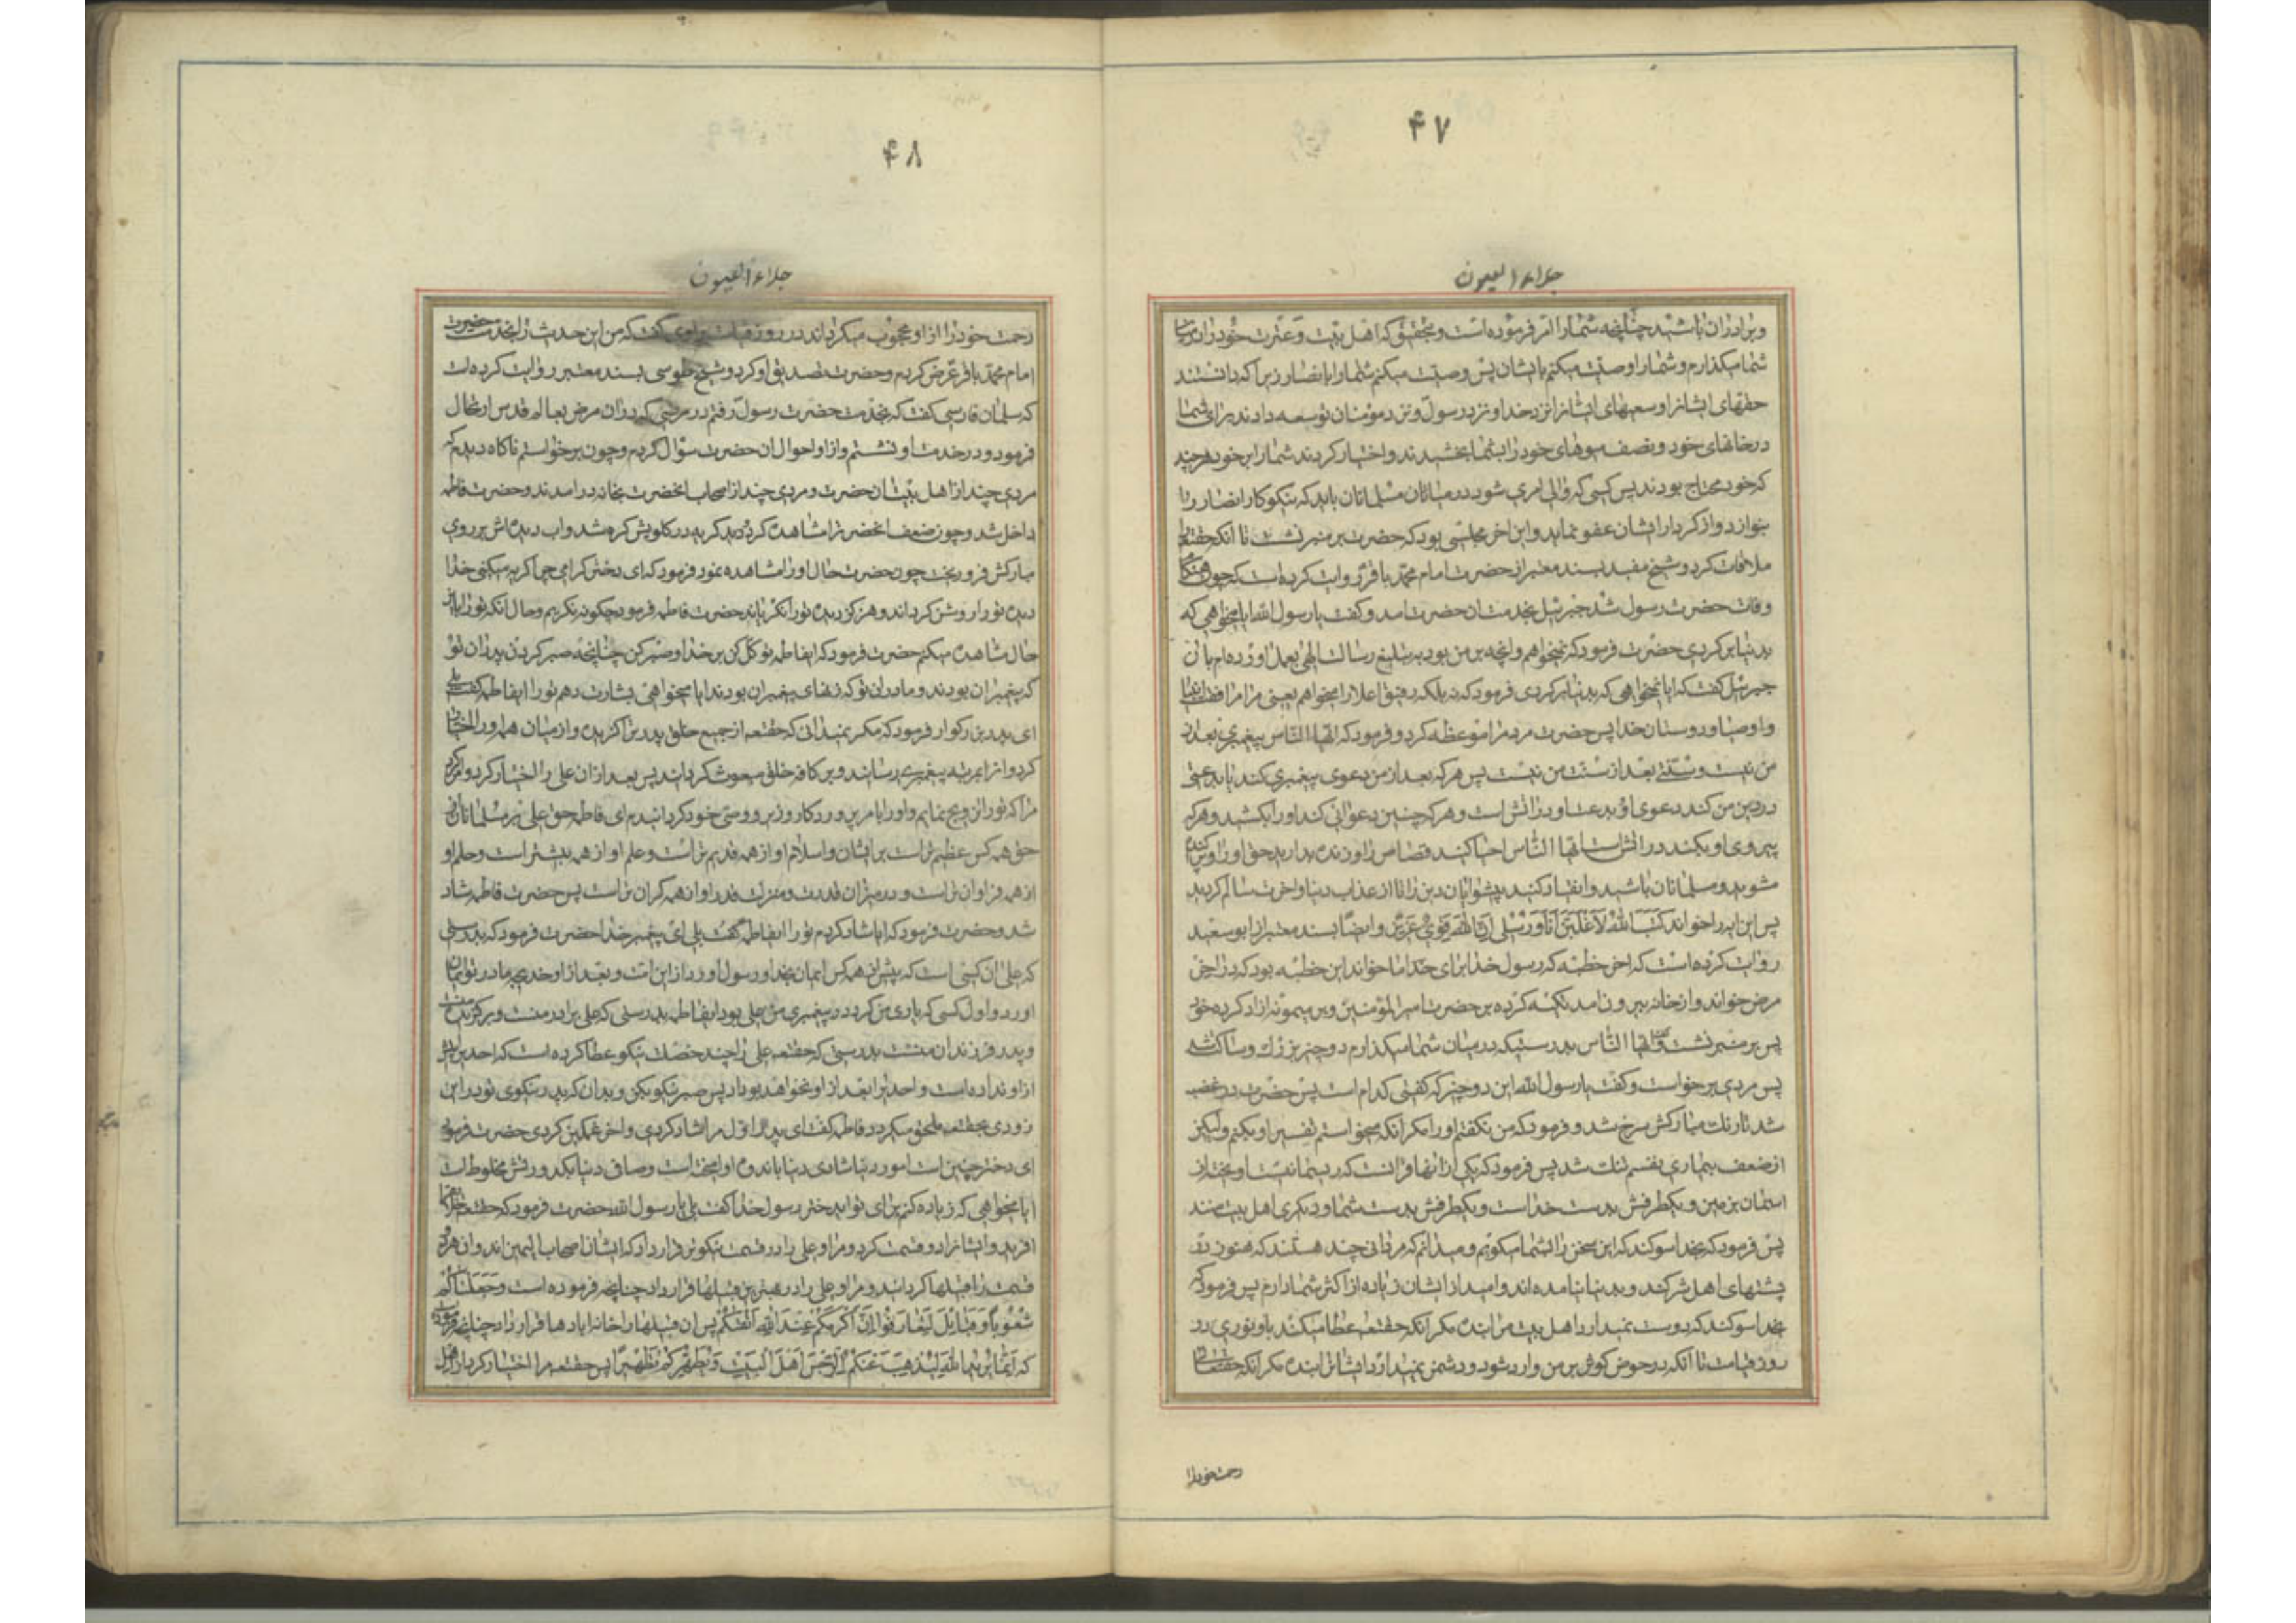 ۴۷
جلاء العیون
و برادران باشید چنانچه شما را امر فرموده است و بتحقیق که اهل بیت و عترت خود را در میان
شما میگذارم و شما را وصیت میکنم بایشان پس وصیت میکنم شما را بانصار زیرا که دانستند
حقهای ایشانرا و سعیهای ایشانرا نزد خدا و نزد رسول و نزد مؤمنان توسعه دادند برای شما
در خانهای خود و نصف میوهای خود را بشما بخشیدند و اختیار کردند شما را بر خود هر چند
که خود محتاج بودند پس کسی که والی امری شود در میانان مسلمانان باید که نیکوکار انصار را
بنوازد و از کردار ایشان عفو نماید و این اخر مجلسی بود که حضرت بر منبر نشست تا انکه حقتعالی را
ملاقات کرد و شیخ مفید بسند معتبر از حضرت امام محمد باقر روایت کرده است که چون هنکام
وفات حضرت رسول شد جبرئیل بخدمت ان حضرت امد و کفت یا رسول الله ایا میخواهی که
بدنیا برکردی حضرت فرمود که نمیخواهم و انچه بر من بود بتبلیغ رسالت الهی بعمل اورده ام باز ان
جبرئیل کفت که ایا نمیخواهی که بدنیا برکردی فرمود که نه بلکه رفیق اعلا را میخواهم یعنی مرافقت انبیا
و اوصیا و دوستان خدا پس حضرت مردم را موعظه کرد و فرمود که ایها الناس پیغمبری بعد از
من نیست و سنتی بعد از سنت من نیست پس هر که بعد از من دعوی پیغمبری کند یا بدعتی
در دین من کند دعوی او بدعت او در اتش است و هر که چنین دعوائی کند او را بکشید و هر که
پیروی او بکند در اتش است ایها الناس احیا کنید قصاص را و زنده بدارید حق را و پراکنده
مشوید و مسلمانان باشید و انقیاد کنید پیشوایان دین را تا از عذاب دنیا و اخرت سالم کردید
پس این ایه را خواند کتب الله لاغلبن انا و رسلی ان الله قوی عزیز و ایضا بسند معتبر از ابو سعید
روایت کرده است که اخر خطبه که رسول خدا برای ما خواند این خطبه بود که در اخر
مرض خواند و از خانه بیرون امد تکیه کرده بر حضرت امیر المؤمنین و بر میمونه ازاد کرده خود
پس بر منبر نشست و کفت ایها الناس بدرستیکه در میان شما میکذارم دو چیز بزرک و ساکت شد
پس مردی برخواست و کفت یا رسول الله این دو چیز که کفتی کدام است پس حضرت در غضب
شد تا رنک مبارکش سرخ شد و فرمود که من نکفتم او را مکر انکه میخواستم تفسیر او بکنم ولیکن
از ضعف بیماری نفسم تنک شد پس فرمود که یکی از انها قرانست که ریسمانیست اویخته از
اسمان بزمین و یکطرفش بدست خداست و یکطرفش بدست شما و دیکری اهل بیت منند
پس فرمود که بخدا سوکند که این سخن را بشما میکویم و میدانم که مردانی چند هستند که هنوز در
پشتهای اهل شرکند و بدنیا نیامده اند و امید از ایشان زیاده از اکثر شما دارم پس فرمود که
بخدا سوکند که دوست نمیدارد اهل بیت مرا بنده مکر انکه حقتعالی عطا میکند باو نوری در
روز قیامت تا انکه در حوض کوثر بر من وارد شود و دشمن نمیدارد ایشانرا بنده مکر انکه حقتعالی
رحمت خود را
۴۸
جلاء العیون
رحمت خود را از او محجوب میکرداند در روز قیامت راوی کفت که من این حدیث را بخدمت حضرت
امام محمد باقر عرض کردم و حضرت تصدیق او کرد و شیخ طوسی بسند معتبر روایت کرده است
که سلمان فارسی کفت که بخدمت حضرت رسول رفتم در مرضی که در ان مرض بعالم قدس ارتحال
فرمود و در خدمت او نشستم و از او احوال ان حضرت سؤال کردم و چون برخواستم ناکاه دیدم که
مردی چند از اهل بیت ان حضرت و مردی چند از اصحاب انحضرت بخانه درامدند و حضرت فاطمه
داخل شد و چون ضعف انحضرترا مشاهده کرد کریه در کلویش کره شد و اب دیده اش بر روی
مبارکش فرو ریخت چون حضرت حال او را مشاهده نمود فرمود که ای دختر کرامی چرا کریه میکنی خدا
دیده تو را روشن کرداند و هرکز دیده تو را نکریاند حضرت فاطمه فرمود چکونه نکریم و حال انکه تو را باین
حال مشاهده میکنم حضرت فرمود که ایفاطمه توکل کن بر خدا و صبر کن چنانچه صبر کردند پدران تو
که پیغمبران بودند و مادران تو که زنهای پیغمبران بودند ایا میخواهی بشارت دهم تو را ایفاطمه کفت بلی
ای پدر بزرکوار فرمود که مکر نمیدانی که حقتعالی از جمیع خلق پدر ترا کزیده و از میان همه او را اختیار
کرد و او را بمرتبه پیغمبری رسانید و بر کافه خلق مبعوث کردانید پس بعد از ان علی را اختیار کرد و امر کرد
مرا که تو را تزویج نمایم و او را بامر پروردکار وزیر و وصی خود کردانیدم ای فاطمه حق علی بر مسلمانان از
حق همه کس عظیم تر است بر ایشان و اسلام او از همه قدیم تر است و علم او از همه بیشتر است و حلم او
از همه فراوان تر است و در میزان قدر و منزلت قدر او از همه کران تر است پس حضرت فاطمه شاد
شد و حضرت فرمود که ایا شاد کردم تو را ایفاطمه کفت بلی ای پیغمبر خدا حضرت فرمود که بدرستی
که علی ان کسی است که پیش از همه کس ایمان بخدا و رسول اورد از این امت و بعد از او خدیجه مادر تو ایمان
اورد و اول کسی که یاری من کرد در پیغمبری من علی بود ایفاطمه بدرستی که علی برادر منست و برکزیده منست
و پدر فرزندان منست بدرستی که حقتعالی علی را چند خصلت نیکو عطا کرده است که احدی را پیش
از او نداده است و احدی را بعد از او نخواهد بود پس صبر نیکو بکن و بدان که پدر نیکوی تو در این
زودی بحقتعالی ملحق میکردد فاطمه کفت ای پدر اول مرا شاد کردی و اخر غمکین کردی حضرت فرمود
ای دختر چنین است امور دنیا شادی دنیا باندوه او امیخته است و صافی دنیا بکدورتش مخلوط است
ایا میخواهی که زیاده کنم برای تو ای دختر رسول خدا کفت بلی یا رسول الله حضرت فرمود که حقتعالی خلق را
افرید و ایشانرا دو قسمت کرد و مرا و علی را در قسمت نیکوتر قرار داد که ایشان اصحاب الیمین اند و ان هر دو
قسمت را قبیلها کردانید و مرا و علی را در بهترین قبیلها قرار داد چنانچه فرموده است و جعلناکم
شعوبا و قبایل لتعارفوا ان اکرمکم عند الله اتقیکم پس ان قبیلها را خانه ابادها قرار داد چنانچه فرموده
که انما یرید الله لیذهب عنکم الرجس اهل البیت و یطهرکم تطهیرا پس حقتعالی مرا اختیار کرد از اهل